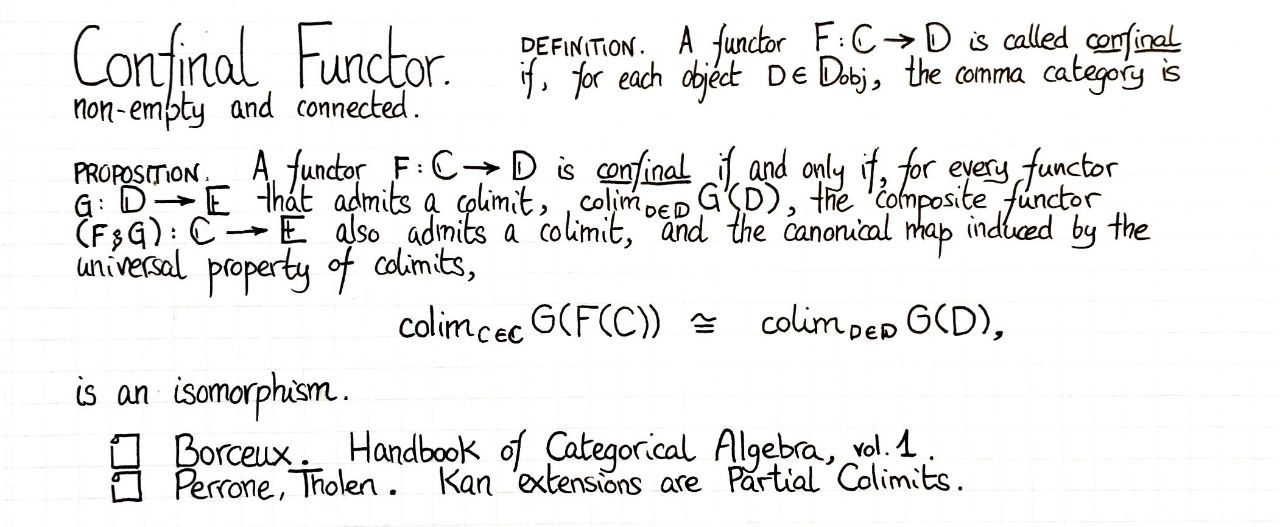 Confinal Functor. DEFINITION. A functor F : ℂ → 𝔻 is called confinal
if, for each object D ∈ 𝔻obj, the comma category is
non-empty and connected.
PROPOSITION. A functor F : ℂ → 𝔻 is confinal if and only if, for every functor
G : 𝔻 → 𝔼 that admits a colimit, colim_{D∈𝔻} G(D), the composite functor
(F⨾G) : ℂ → 𝔼 also admits a colimit, and the canonical map induced by the
universal property of colimits,
colim_{C∈ℂ} G(F(C)) ≅ colim_{D∈𝔻} G(D),
is an isomorphism.
Borceux. Handbook of Categorical Algebra, vol. 1.
Perrone, Tholen. Kan extensions are Partial Colimits.